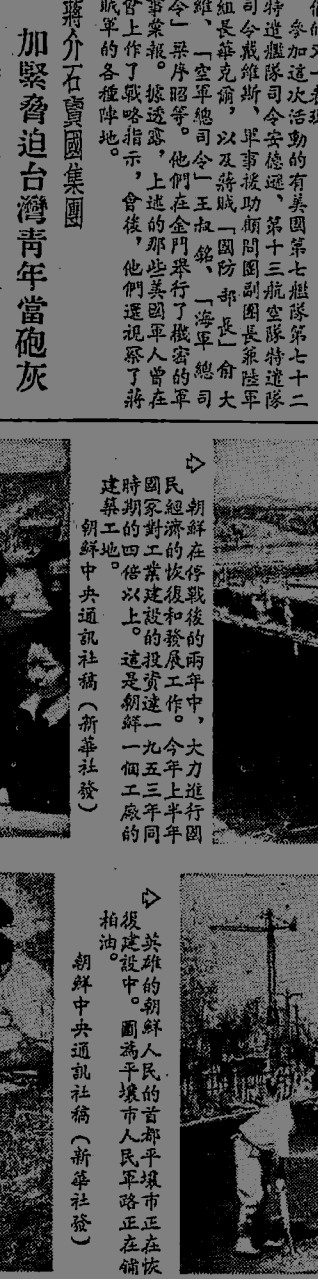 參加這次活動的有美國第七艦隊第七十二
特遣艦隊司令安德遜、第十三航空隊特遣隊
司令戴維斯、軍事援助顧問團副團長兼陸軍
組長華克爾，以及蔣賊「國防部長」俞大
維、「空軍總司令」王叔銘、「海軍總司
令」梁序昭等。他們在金門舉行了機密的軍
事彙報。據透露，上述的那些美國軍人曾在
會上作了戰略指示，會後，他們還視察了蔣
賊軍的各種陣地。
蔣介石賣國集團
加緊脅迫台灣青年當砲灰
朝鮮在停戰後的兩年中，大力進行國
民經濟的恢復和發展工作。今年上半年
國家對工業建設的投資達一九五三年同
時期的四倍以上。這是朝鮮一個工廠的
建築工地。
朝鮮中央通訊社稿（新華社發）
英雄的朝鮮人民的首都平壤市正在恢
復建設中。圖爲平壤市人民軍路正在鋪
柏油。
朝鮮中央通訊社稿（新華社發）